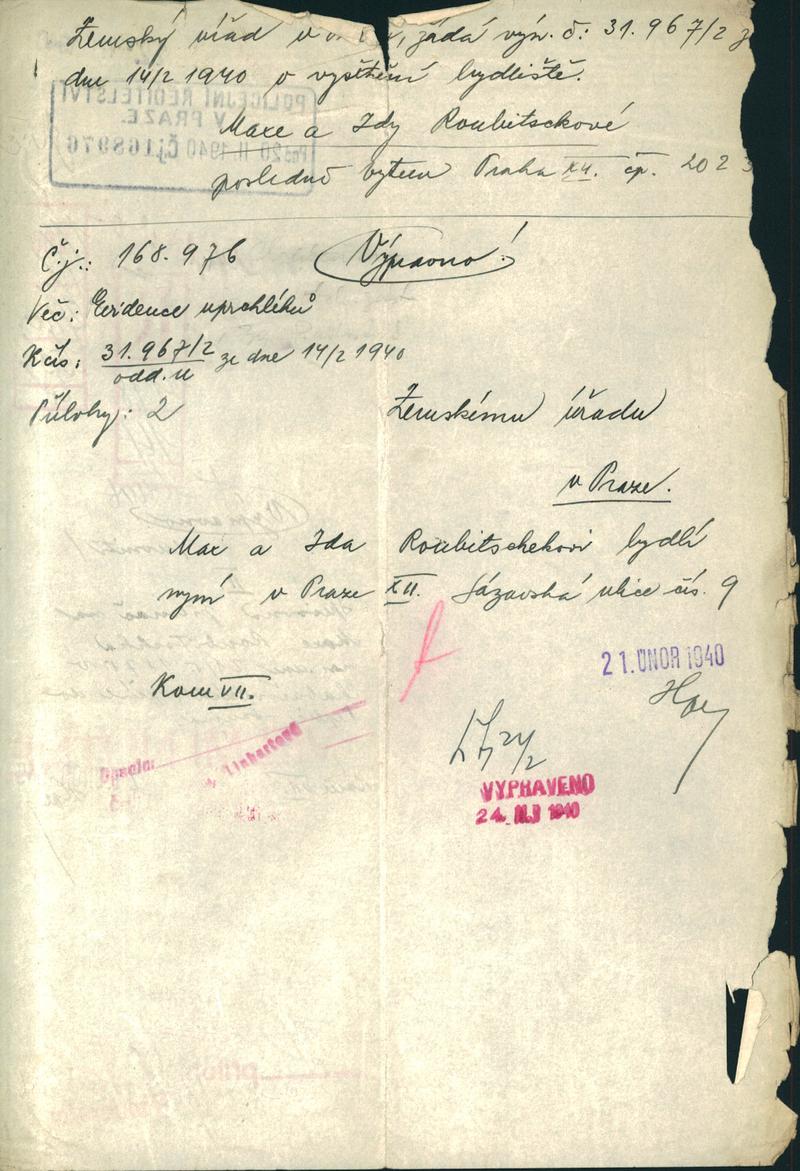 Zemský úřad v , žádá výn. č: 31.967/2 z
dne 14/2 1940 o vyštření bydliště.
POLICEJNÍ ŘEDITELSTVÍ
V PRAZE.
20 II 1940 Čj 168976
Maxe a Idy Roubitschkové
posledně bytem Praha XII. čp. 202
Č.j.: 168.976 Výpravno!
Věc: Evidence uprchlíků
K čís: 31.967/2 ze dne 14/2 1940
odd. u
Přílohy: 2 Zemskému úřadu
v Praze.
Max a Ida Roubitschekovi bydlí
nyní v Praze XII. Sázavská ulice čís. 9
21. ÚNOR 1940
Kom VII.
Opsala: Linhartová
21/2
VYPRAVENO
24. II. 1940